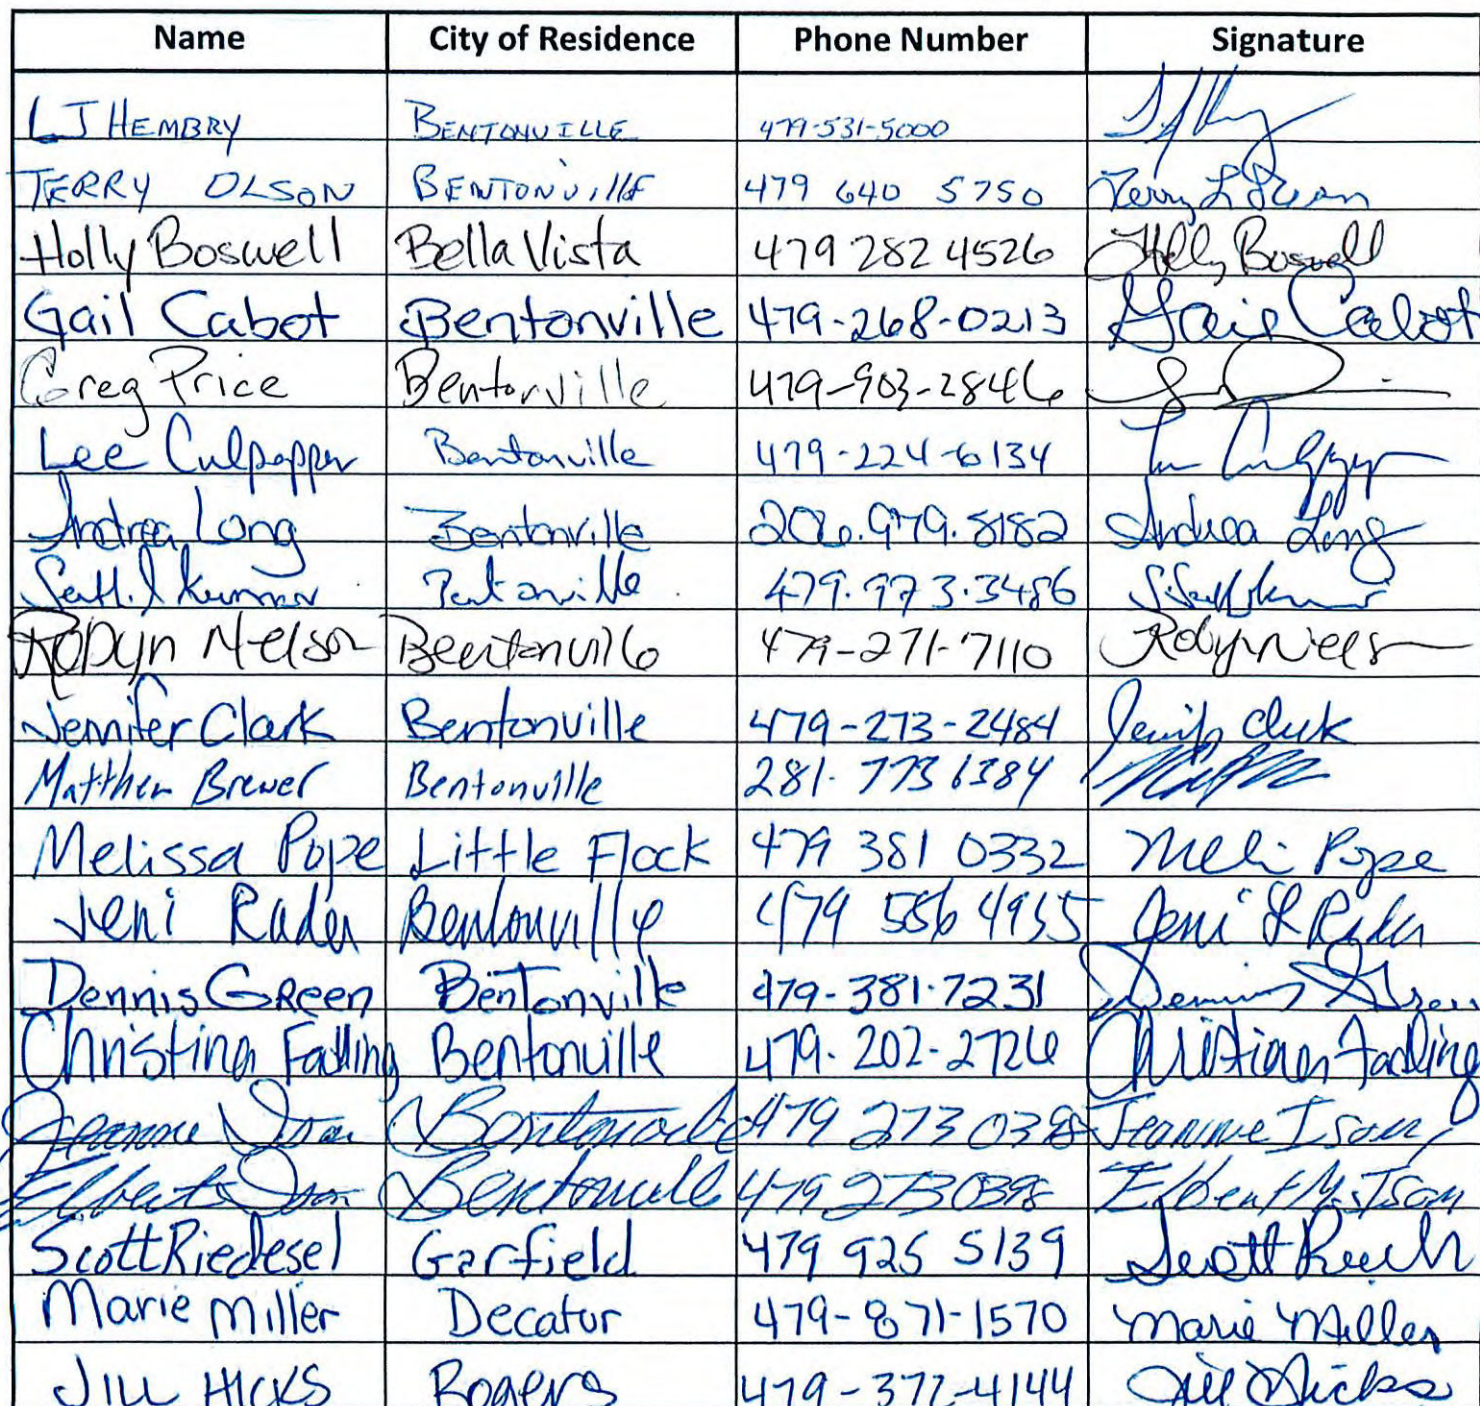 Name City of Residence Phone Number Signature
LJ HEMBRY BENTONVILLE 479-531-5000
TERRY OLSON BENTONVILLE 479 640 5750 Terry L Olson
Holly Boswell Bella Vista 479 282 4526 Holly Boswell
Gail Cabot Bentonville 479-268-0213 Gail Cabot
Greg Price Bentonville 479-903-2846
Lee Culpepper Bentonville 479-224-6134
Andrea Long Bentonville 206.979.8182 Andrea Long
Kumar Bentonville 479.973.3486
Robyn Nelson Bentonville 479-271-7110 Robyn Nelson
Jennifer Clark Bentonville 479-273-2484 Jennifer Clark
Matthew Brewer Bentonville 281-773 6384
Melissa Pope Little Flock 479 381 0332 Meli Pope
Jeni Rader Bentonville 479 586 4955 Jeni L Rader
Dennis Green Bentonville 479-381-7231 Dennis Green
Christina Fading Bentonville 479-202-2726 Christian Fadling
Jeanne Ison Bentonville 479 273 0398 Jeannie Ison
Elbert Ison Bentonville 479 273 0398 Elbert Ison
Scott Riedesel Garfield 479 925 5139 Scott
Marie Miller Decatur 479-871-1570 Marie Miller
JILL HICKS Rogers 479-372-4144 Jill Hicks